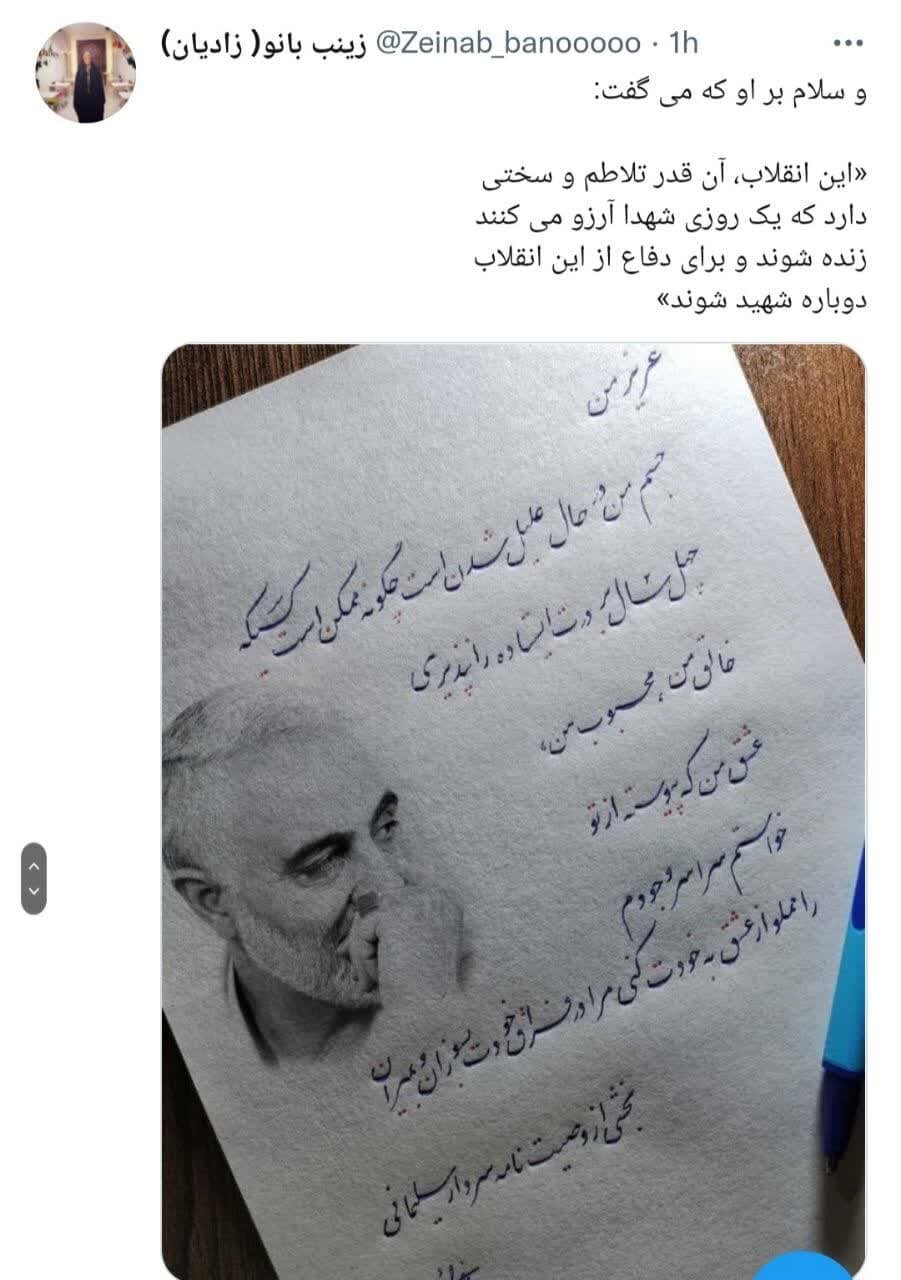 زینب بانو( زادیان) @Zeinab_banooooo · 1h
و سلام بر او که می گفت:
«این انقلاب، آن قدر تلاطم و سختی
دارد که یک روزی شهدا آرزو می کنند
زنده شوند و برای دفاع از این انقلاب
دوباره شهید شوند»
عزیز من
جسم من در حال علیل شدن است چگونه ممکن است کسیکه
چهل سال بر درت ایستاده را نپذیری
خالق من، محبوب من،
عشق من که پیوسته از تو
خواستم سراسر وجودم
را مملو از عشق به خودت کنی مرا در فراق خودت بسوزان و بمیران
بخشی از وصیت نامه سردار سلیمانی